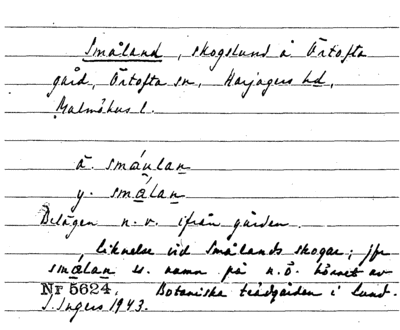 Småland, skogslund å Örtofta
gård, Örtofta sn, Harjagers hd,
Malmöhus l.
ä. småulan
y. smålan
Belägen n. v. ifrån gården.
liknelse vid Smålands skogar; jfr
smålan ss. namn på n.ö. hörnet av
Nr 5624. Botaniska trädgården i Lund.
I. Ingers 1943.